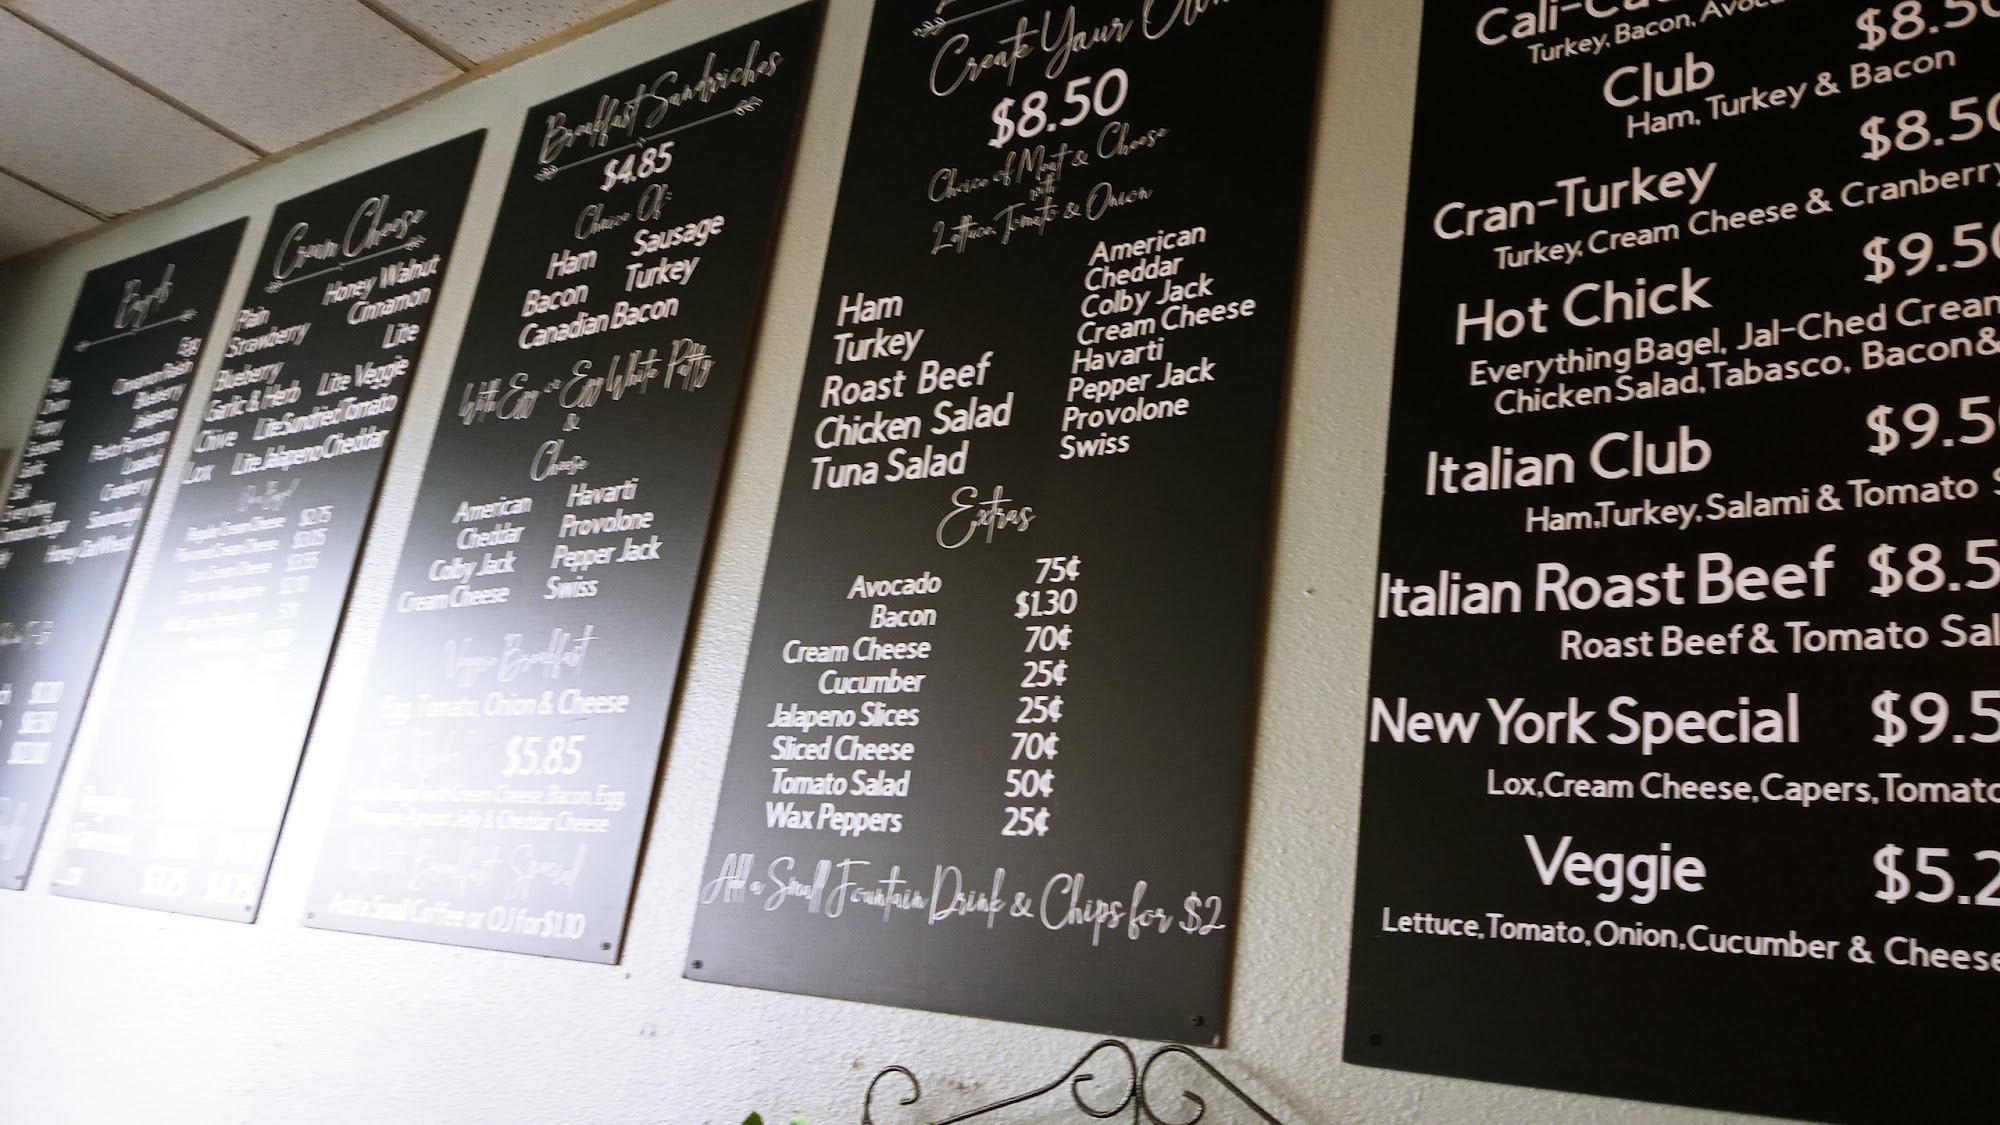 Bagels
Egg
Plain
Cinnamon Raisin
Onion
Blueberry
Poppy
Jalapeno
Sesame
Pesto Parmesan
Garlic
Loaded
Salt
Cranberry
Everything
Sourdough
Cinnamon Sugar
Honey Oat Wheat
Cream Cheese
Plain
Honey Walnut
Strawberry
Cinnamon
Blueberry
Lite
Garlic & Herb
Lite Veggie
Chive
Lite Sundried Tomato
Lox
Lite Jalapeno Cheddar
Regular Cream Cheese $2.75
Flavored Cream Cheese $3.05
Lox Cream Cheese
Regular
Flavored
$3.25 $4.75
Breakfast Sandwiches
$4.85
Choice Of:
Ham Sausage
Bacon Turkey
Canadian Bacon
With Egg or Egg White Patty
&
Cheese
American Havarti
Cheddar Provolone
Colby Jack Pepper Jack
Cream Cheese Swiss
Veggie Breakfast
Egg, Tomato, Onion & Cheese
$5.85
with Cream Cheese, Bacon, Egg,
Apricot Jelly & Cheddar Cheese
Breakfast Special
Add a Small Coffee or OJ for $1.10
Create Your Own
$8.50
Choice of Meat & Cheese
with
Lettuce, Tomato & Onion
Ham
Turkey
Roast Beef
Chicken Salad
Tuna Salad
American
Cheddar
Colby Jack
Cream Cheese
Havarti
Pepper Jack
Provolone
Swiss
Extras
Avocado 75¢
Bacon $1.30
Cream Cheese 70¢
Cucumber 25¢
Jalapeno Slices 25¢
Sliced Cheese 70¢
Tomato Salad 50¢
Wax Peppers 25¢
Add a Small Fountain Drink & Chips for $2
Turkey, Bacon,
Club $8.50
Ham, Turkey & Bacon
Cran-Turkey $8.50
Turkey, Cream Cheese & Cranberry
Hot Chick $9.50
Everything Bagel, Jal-Ched Cream
Chicken Salad, Tabasco, Bacon &
Italian Club $9.5
Ham, Turkey, Salami & Tomato S
Italian Roast Beef $8.5
Roast Beef & Tomato Sal
New York Special $9.5
Lox, Cream Cheese, Capers, Tomato
Veggie $5.2
Lettuce, Tomato, Onion, Cucumber & Cheese